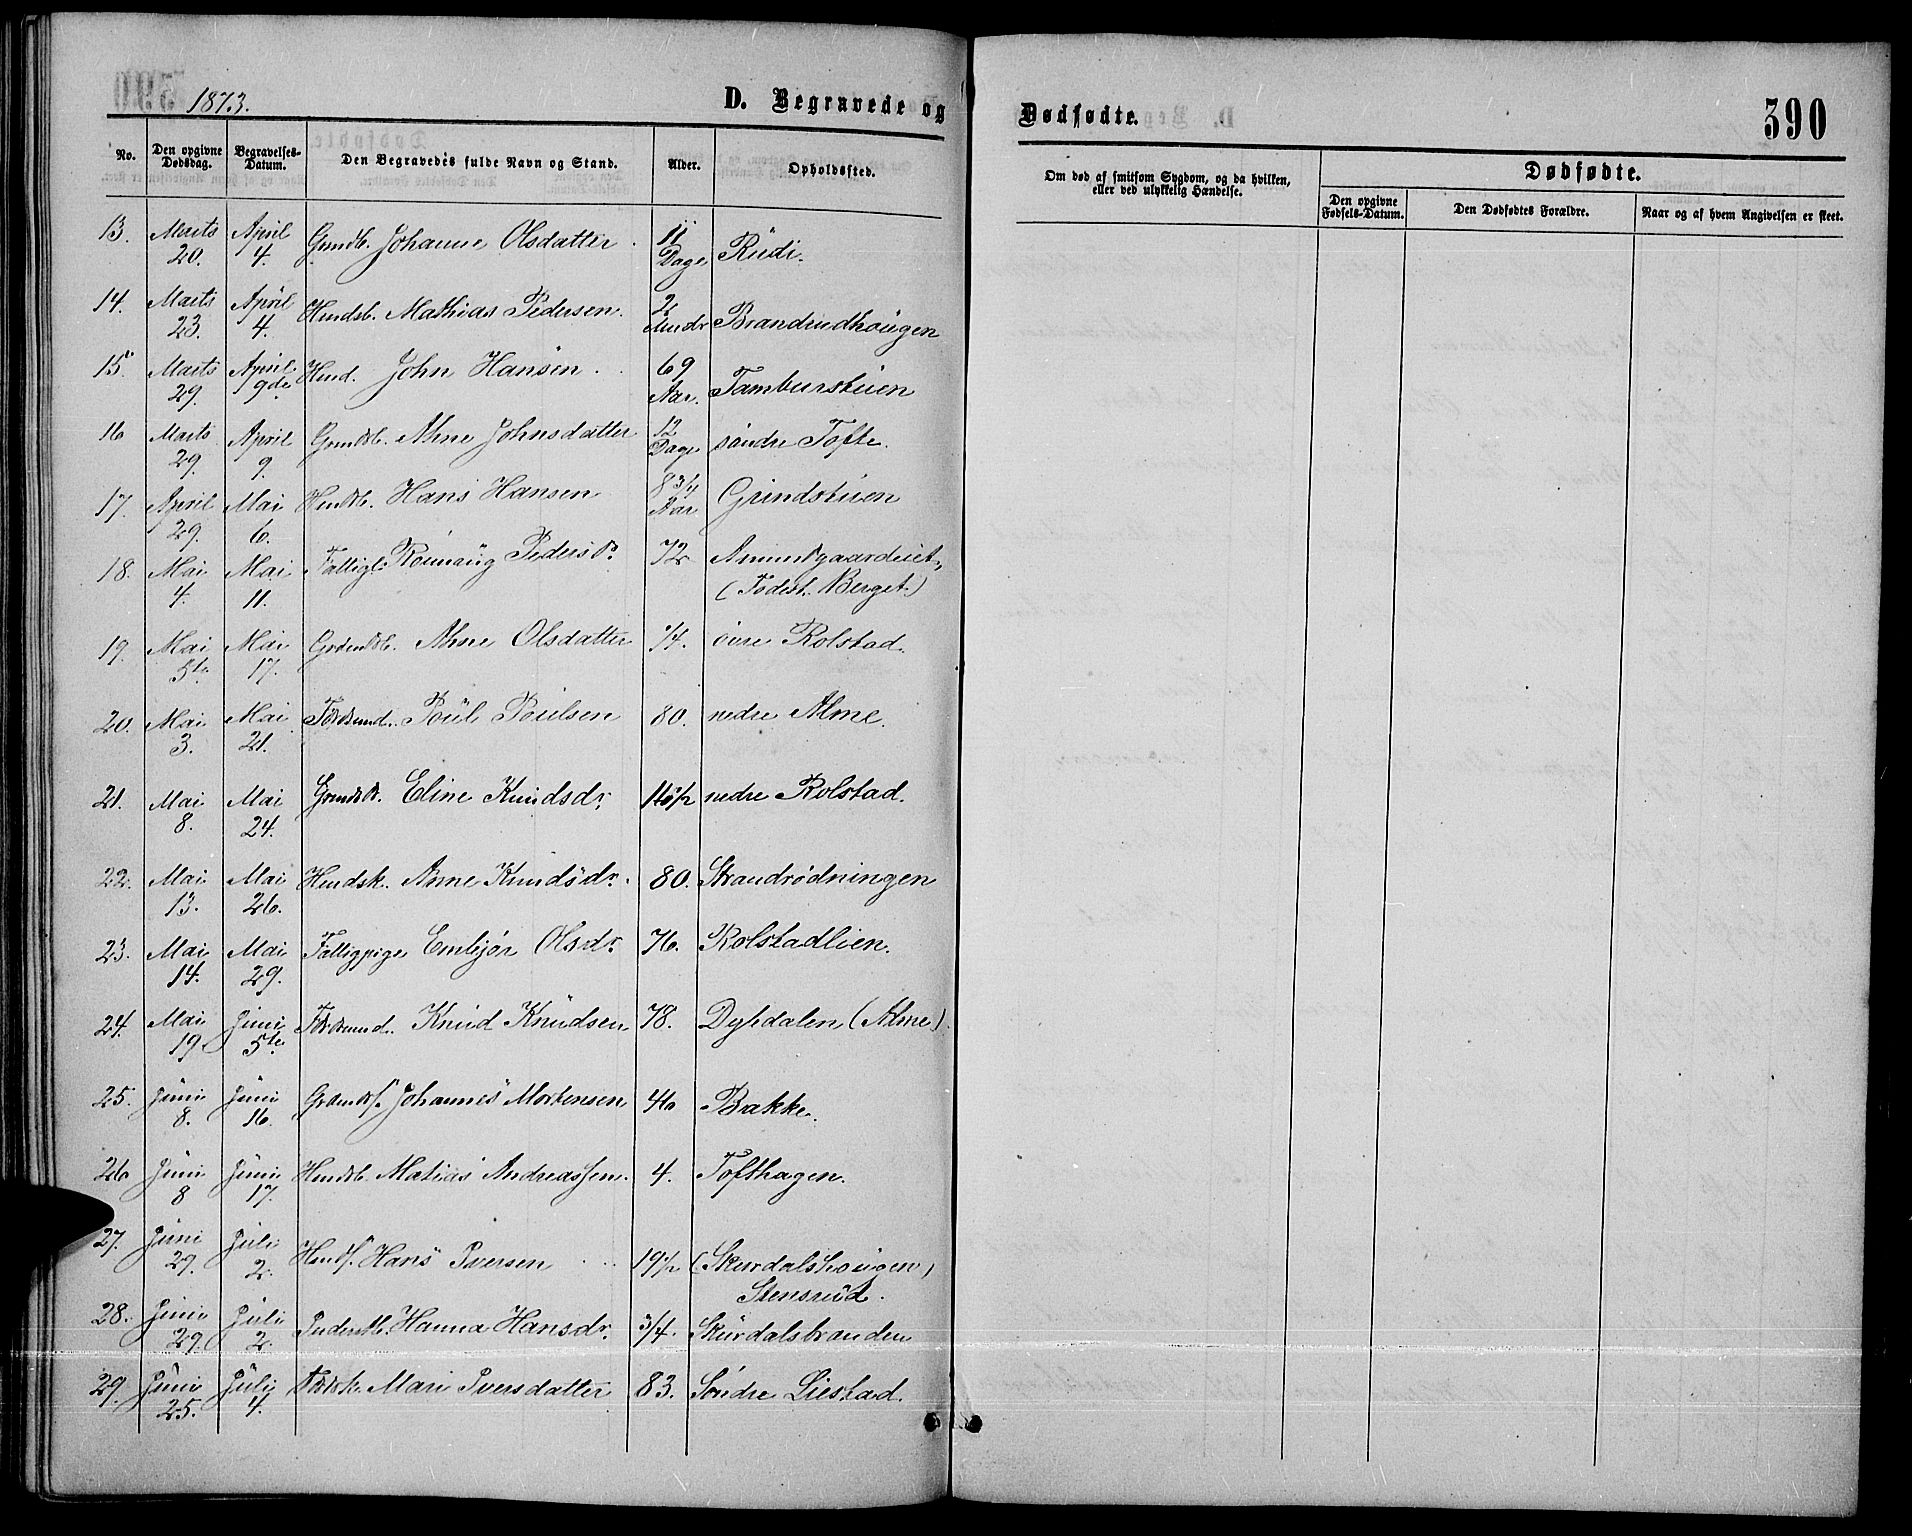 1873.
D. Begravede og Dødfødte.
390
No.
Den opgivne Dødsdag.
Begravelses-Datum.
Den Begravedes fulde Navn og Stand.
Alder.
Opholdssted.
Om død af smitsom Sygdom, og da hvilken,
eller ved ulykkelig Hændelse.
Dødfødte.
Den opgivne Fødsels-Datum.
Den Dødfødtes Forældre.
Naar og af hvem Angivelsen er skeet.
13. Marts 20. April 4. Grmdb. Johanne Olsdatter. 11 Dage Rudi.
14. Marts 23. April 4. Husdsb. Mathias Pedersen. 2 Mndr Brandrudhougen
15. Marts 29. April 9de Husd. John Hansen 69 Aar. Tamburstuen
16 Marts 29. April 9. Grmdb. Anne Johnsdatter 12 Dage søndre Tofte.
17. April 29. Mai 6. Husdb. Hans Hansen 8 3/4 Aar Grindstuen
18. Mai 4. Mai 11. Fattigl. Pedersdr. 72 Amundgaardeiet,
(Fødest. Berget.)
19. Mai 5te Mai 17. Grdmdb. Anne Olsdatter 1/4. øvre Rolstad.
20. Mai 3. Mai 21. Fdrdsmd. Poul Poulsen 80. nedre Alme.
21. Mai 8. Mai 24. Eline Knudsdr. nedre Rolstad.
22. Mai 13. Mai 26. Husdsk. Anne Knudsdr. 80. Strandrødningen
23. Mai 14. Mai 29. Fattigpige Embjør Olsdr. 76. Rolstadlien.
24. Mai 19 Juni 5te Fdrdsmd. Knud Knudsen 78. Dybdalen (Alme).
25. Juni 8. Juni 16. Johannes Mortensen 46 Bakke.
26 Juni 8 Juni 17. Husdb. Matias Andreassen. 4. Tofthagen.
27. Juni 29. Juli 2. Hans Iversen 19 1/2 (Skurdalshougen)
Stensrud.
28. Juni 29. Juli 2. Inderstb. Hanna Hansdr. 3/4. Skurdalsbranden
29. Juni 25. Juli 4. Fdrdk. Mari Iversdatter 83. Søndre Listad.